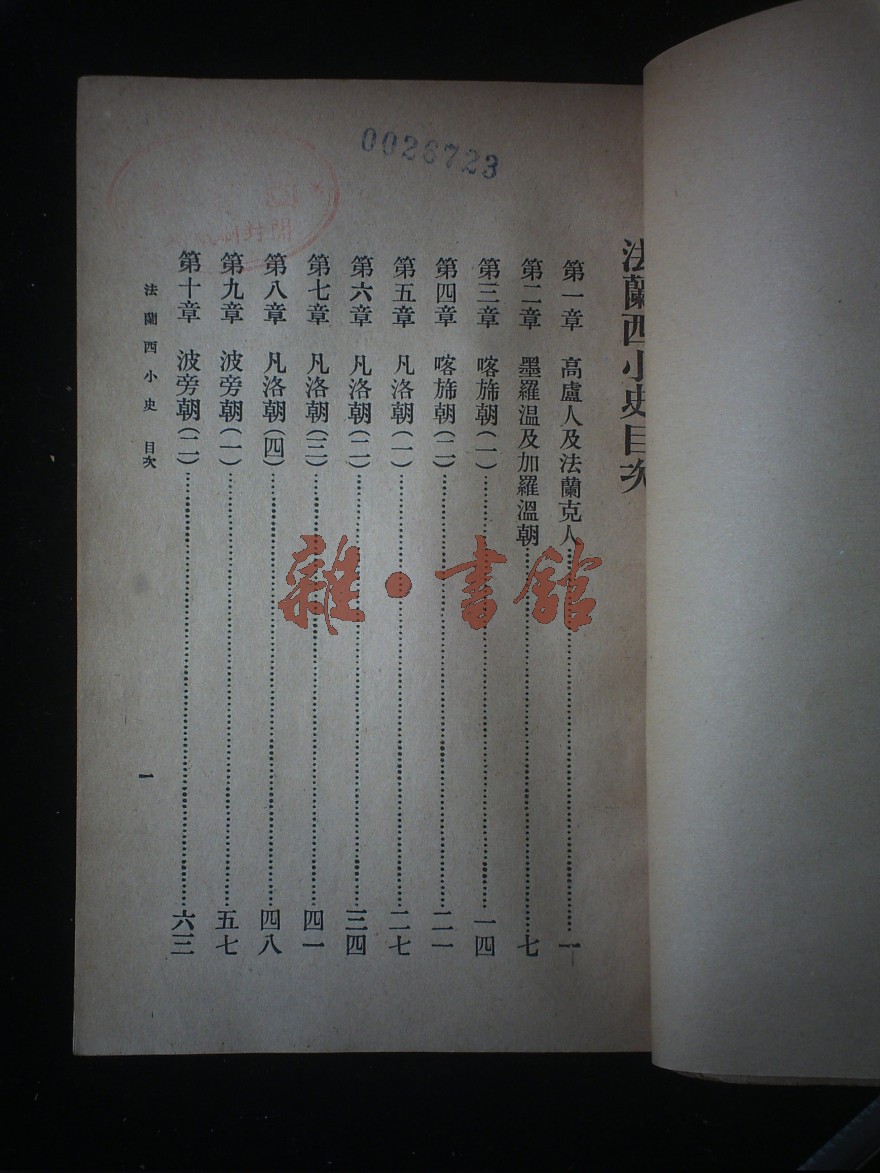 0026723
法蘭西小史目次
第一章 高盧人及法蘭克人……一
第二章 墨羅温及加羅溫朝……七
第三章 喀斾朝(一)……一四
第四章 喀斾朝(二)……二一
第五章 凡洛朝(一)……二七
第六章 凡洛朝(二)……三四
第七章 凡洛朝(三)……四一
第八章 凡洛朝(四)……四八
第九章 波旁朝(一)……五七
第十章 波旁朝(二)……六三
法蘭西小史 目次
一
雜·書館